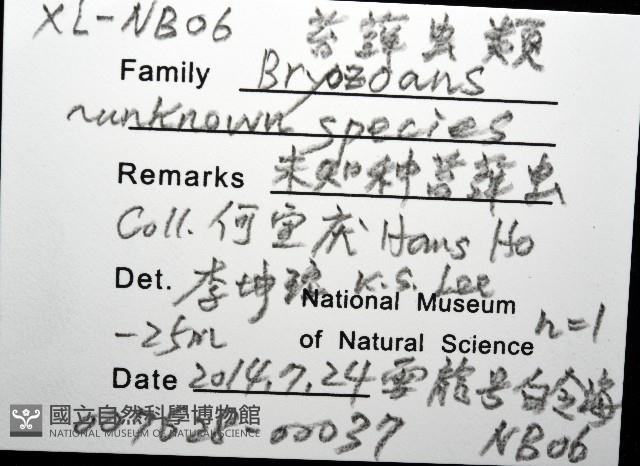 XL-NB06 苔蘚虫類
Family Bryozoans
unknown species
Remarks 未知种苔蘚虫
Coll. 何宣庆 Hans Ho
Det. 李坤瑄 K.S. Lee
National Museum
-25m of Natural Science n=1
Date 2014.7.24 雪龍号白令海
國立自然科學博物館
NATIONAL MUSEUM OF NATURAL SCIENCE
00037 NB06